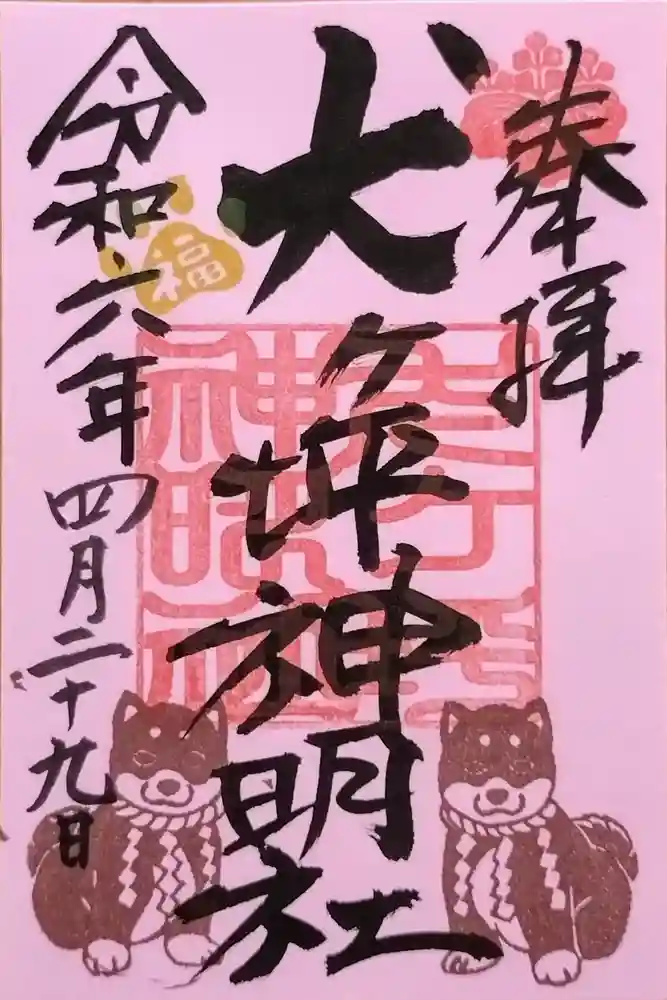 奉拝
犬ヶ坪神明社
令和六年四月二十九日
福